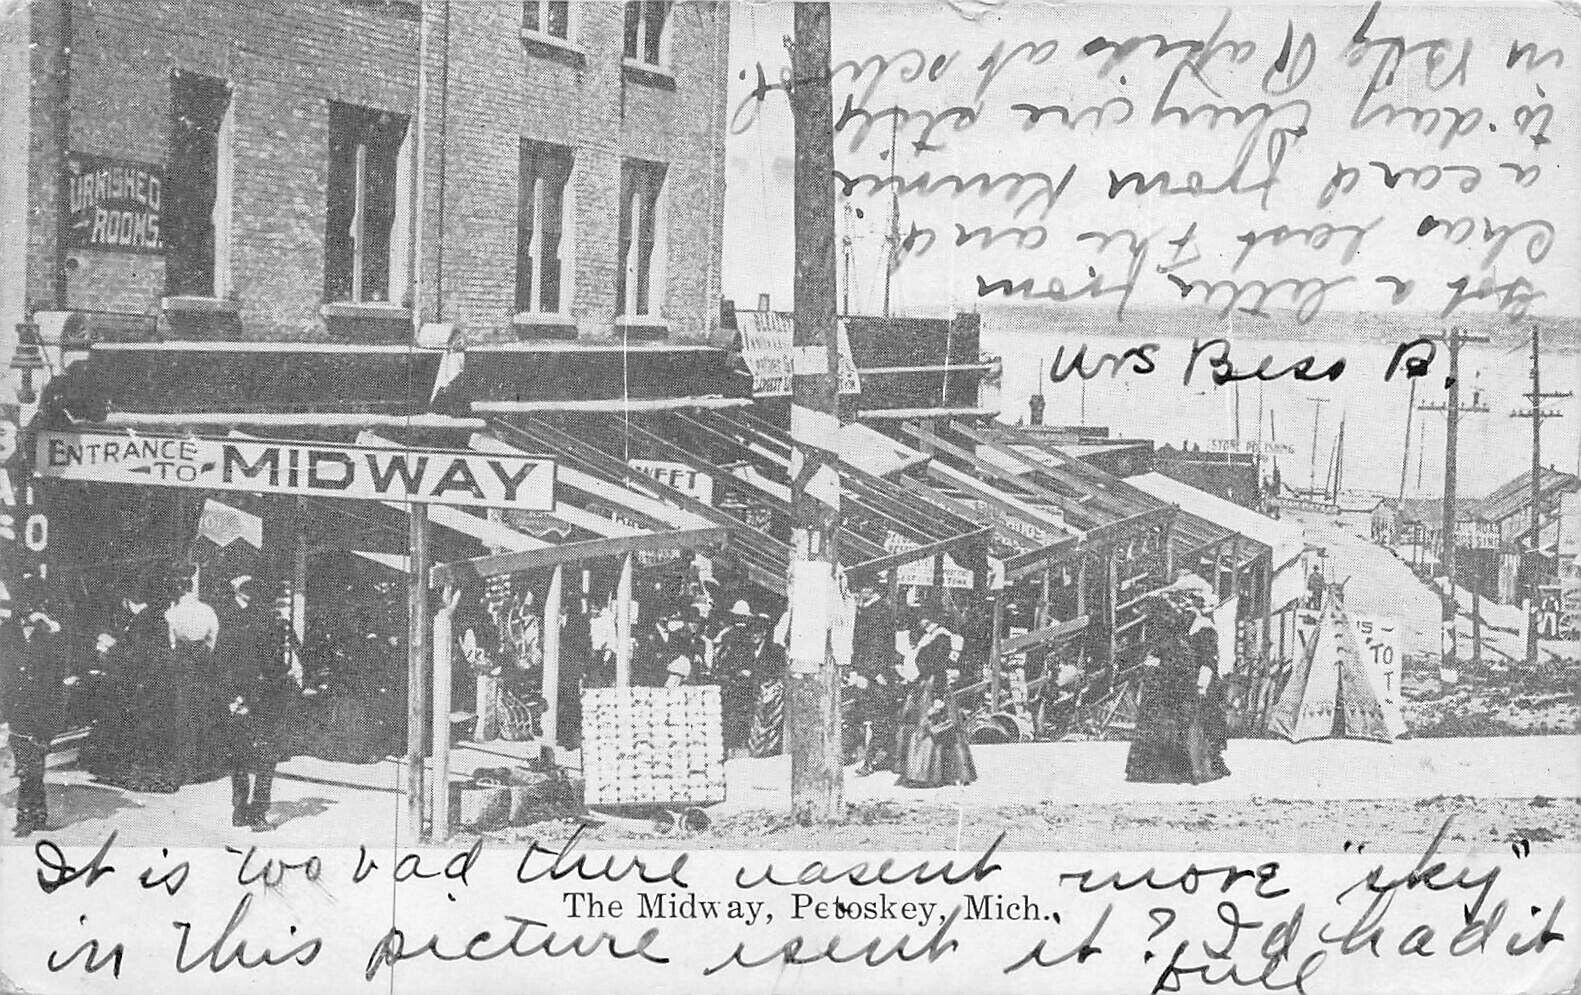 Got a letter from
Chas last the and
a card from Kennie
to-day they are
in Big Rapids at school.
Mrs Bess B.
FURNISHED
ROOMS.
ENTRANCE
TO MIDWAY
SWEET
TO
It is too bad there wasent more "sky"
The Midway, Petoskey, Mich.
in this picture isent it? I'd had it
full